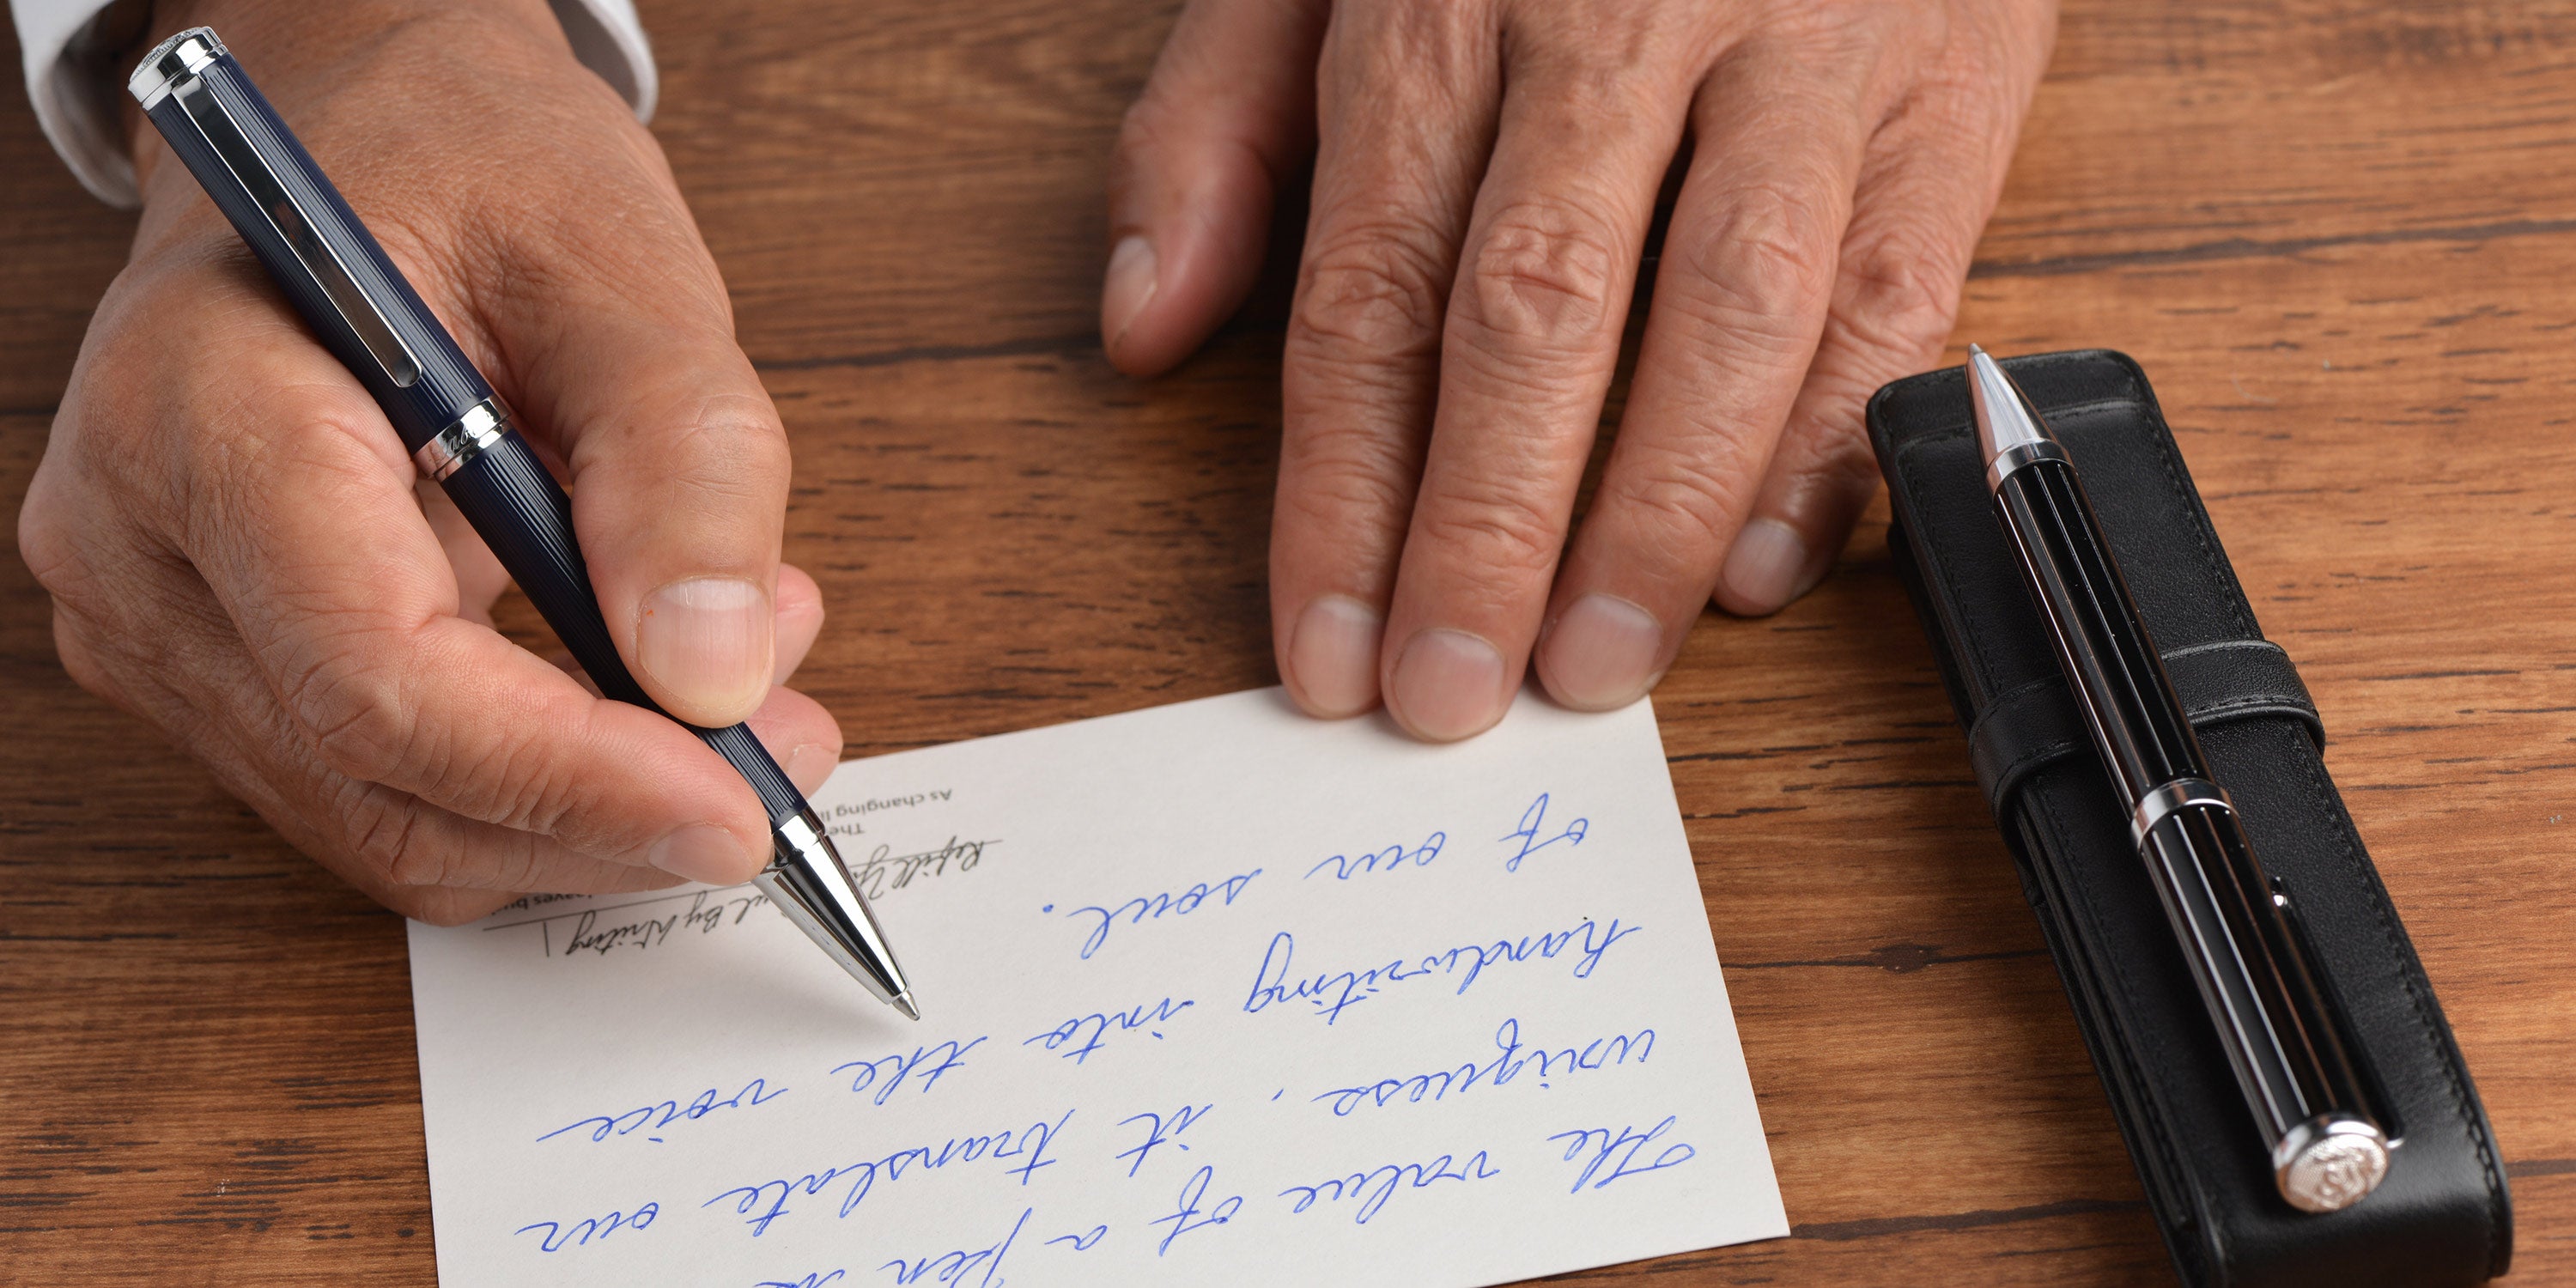 The value of a pen is
uniquess, it translate our
handwriting into the voice
of our soul.
Refill By Writing
The
As changing